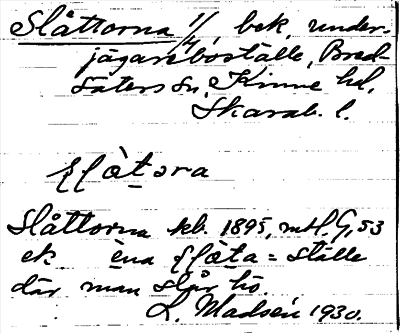 Slåttorna 1/4, bek. under-
jägareboställe, Bred-
säters sn, Kinne hd,
Skarab. l.
Slåttorna kb. 1895, mtl. G, 53
ek èna = ställe
där man slår hö.
L. Madsén 1930.